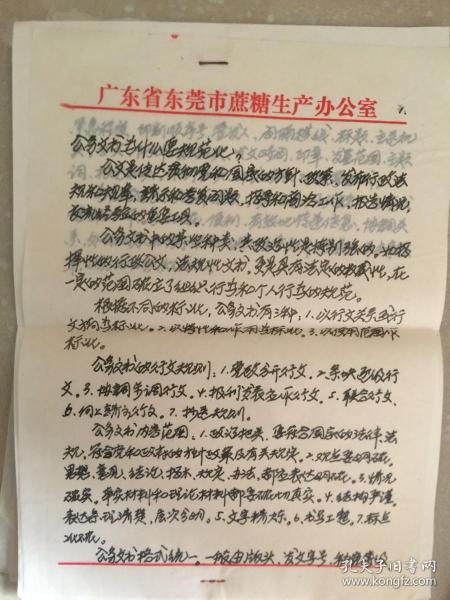 广东省东莞市蔗糖生产办公室
7.
公务文书为什么要规范化？
公文是传达贯彻党和国家的方针、政策、发布行政法
规和规章，请示和答复问题，指导和商洽工作，报告情况，
交流经验的重要工具。
公务文书中的某些种类，其政治性是特别强的。如指
挥性的行政公文、法规性文书，更是具有法定的权威性，在
一定的范围确立了组织行为和个人行为的规范。
根据不同的标准，公务文书有三种：1.以行文关系或行
文方向为标准。2.以特性和作用为标准。3.以使用范围作
标准。
公务文书的行文规则：1.党政分开行文。2.条块逐级行
文。3.协调步调行文。4.授权发表行文。5.联合行文、
6.向上级行文。7.抄送规则。
公务文书内容范围：1.政治把关，要符合国家的法律、法
规，符合党和政府的方针政策及有关规定。2.观点要明确。
思想、意见、结论、指示、决定、办法、都要表达明确。3.情况
确实。事实材料和理论材料都要确切真实。4.结构严谨。
表达条理清楚，层次分明。5.文字精炼。6.书写工整。7.标点
准确。
公务文书格式统一。一般由版头、发文字号、
孔夫子旧书网